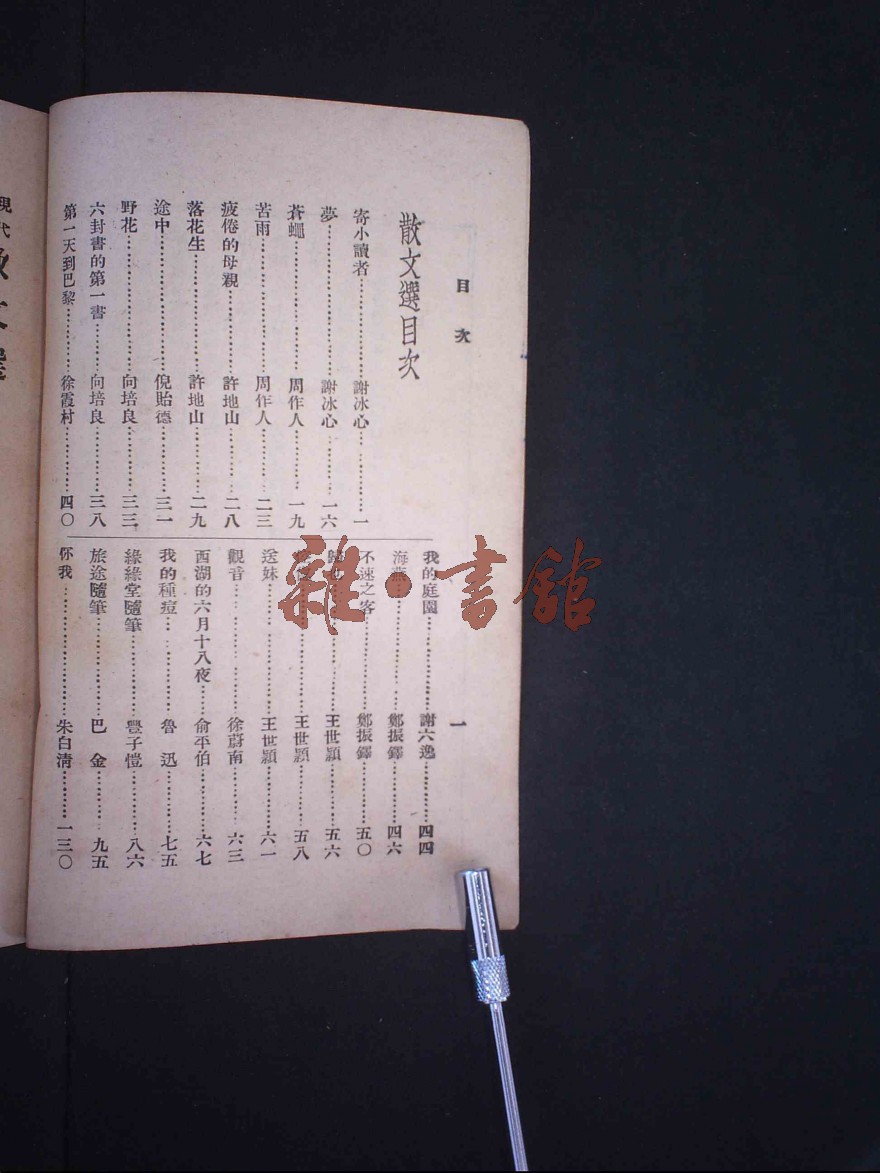 目次
一
散文選目次
寄小讀者⋯⋯謝冰心⋯⋯一
夢⋯⋯謝冰心⋯⋯一六
蒼蠅⋯⋯周作人⋯⋯一九
苦雨⋯⋯周作人⋯⋯二三
疲倦的母親⋯⋯許地山⋯⋯二八
落花生⋯⋯許地山⋯⋯二九
途中⋯⋯倪貽德⋯⋯三一
野花⋯⋯向培良⋯⋯三三
六封書的第一書⋯⋯向培良⋯⋯三八
第一天到巴黎⋯⋯徐霞村⋯⋯四〇
我的庭園⋯⋯謝六逸⋯⋯四四
海燕⋯⋯鄭振鐸⋯⋯四六
不速之客⋯⋯鄭振鐸⋯⋯五〇
歸⋯⋯王世穎⋯⋯五六
⋯⋯王世穎⋯⋯五八
送妹⋯⋯王世穎⋯⋯六一
觀音⋯⋯徐蔚南⋯⋯六三
西湖的六月十八夜⋯⋯俞平伯⋯⋯六七
我的種痘⋯⋯魯迅⋯⋯七五
緣緣堂隨筆⋯⋯豐子愷⋯⋯八六
旅途隨筆⋯⋯巴金⋯⋯九五
你我⋯⋯朱自清⋯⋯一三〇
現代散文選
雜·書館